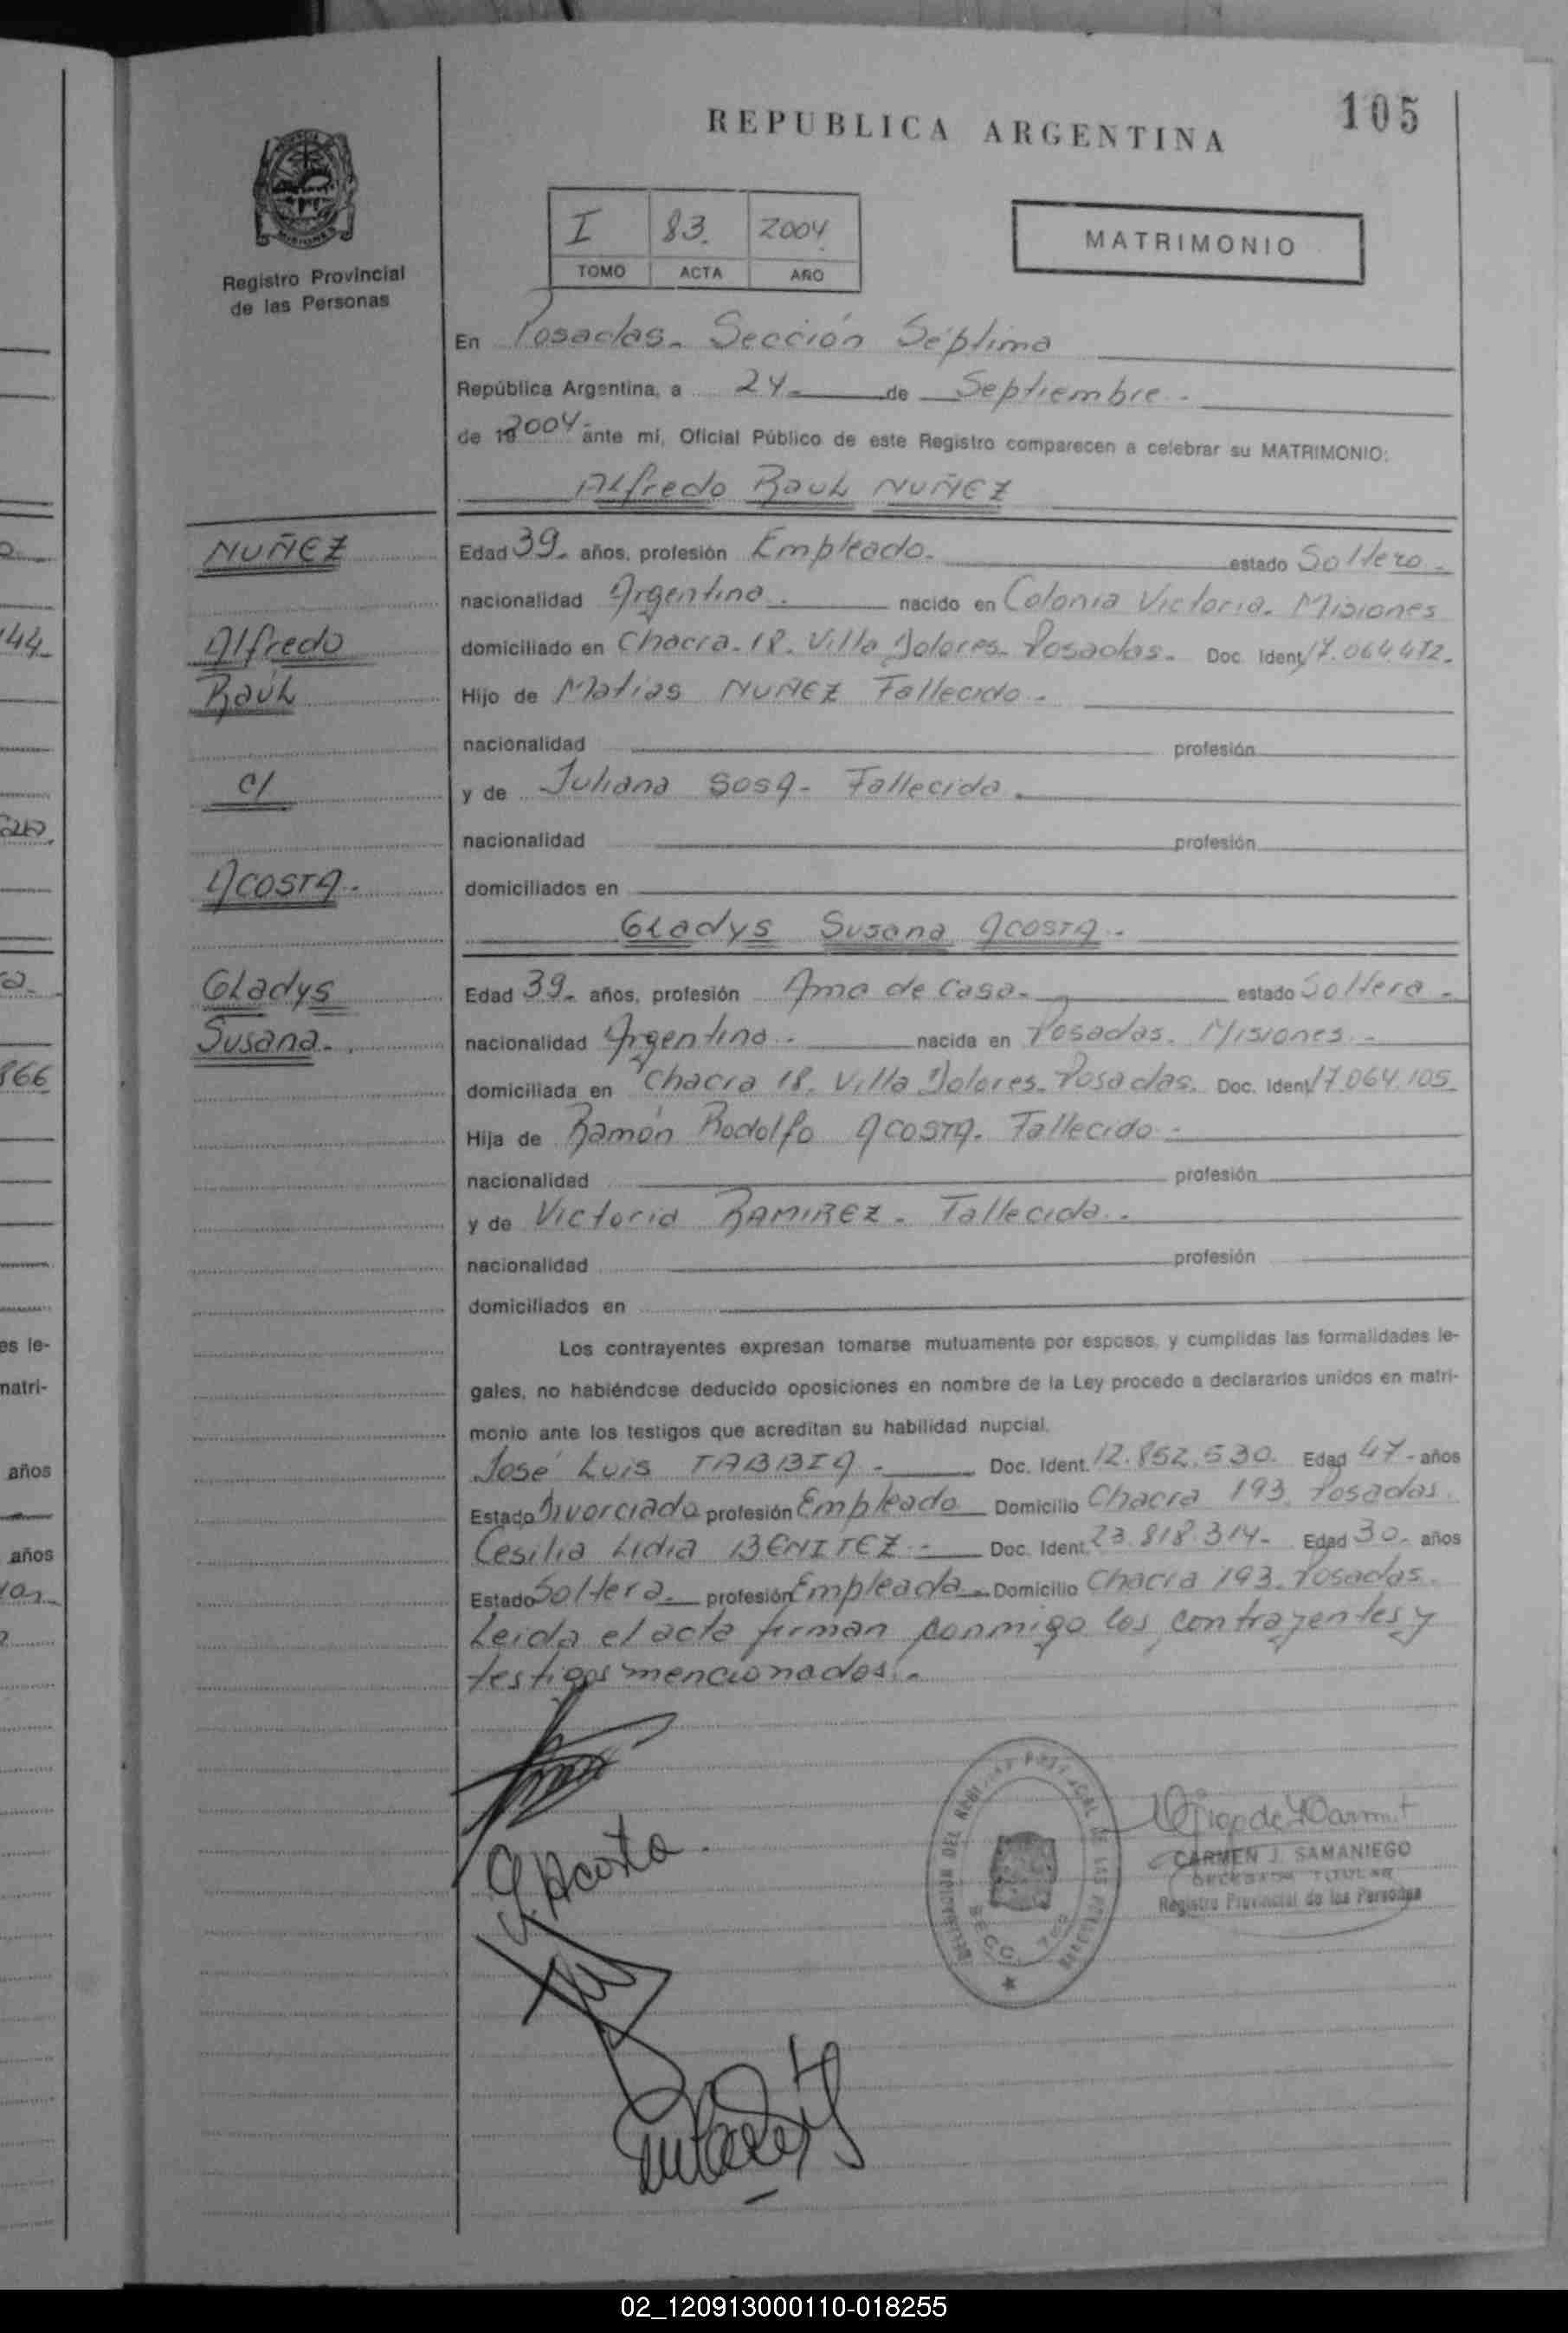 105
REPUBLICA ARGENTINA
I 83. 2004
TOMO ACTA AÑO
MATRIMONIO
Registro Provincial
de las Personas
En Posadas. Sección Séptima
República Argentina, a 24 de Septiembre.
de 19 2004 ante mi, Oficial Público de este Registro comparecen a celebrar su MATRIMONIO:
Alfredo Raul NUÑEZ
NUÑEZ
Alfredo
Raúl
c/
ACOSTA.
Gladys
Susana.
Edad 39. años, profesión Empleado. estado Soltero.
nacionalidad Argentina. nacido en Colonia Victoria. Misiones
domiciliado en Chacra. 18. Villa Dolores. Posadas. Doc. Ident. 17.064.472.
Hijo de Matias NUÑEZ Fallecido.
nacionalidad profesión
y de Juliana SOSA. Fallecida.
nacionalidad profesión
domiciliados en
Gladys Susana ACOSTA.
Edad 39. años, profesión Ama de Casa. estado Soltera.
nacionalidad Argentina. nacida en Posadas. Misiones.
domiciliada en Chacra 18. Villa Dolores. Posadas. Doc. Ident. 17.064.105
Hija de Ramón Rodolfo ACOSTA. Fallecido.
nacionalidad profesión
y de Victoria RAMIREZ. Fallecida.
nacionalidad profesión
domiciliados en
Los contrayentes expresan tomarse mutuamente por esposos, y cumplidas las formalidades le-
gales, no habiéndose deducido oposiciones en nombre de la Ley procedo a declararlos unidos en matri-
monio ante los testigos que acreditan su habilidad nupcial.
José Luis TABBIA. Doc. Ident. 12.852.530. Edad 47. años
Estado Divorciado profesión Empleado Domicilio Chacra 193. Posadas.
Cesilia Lidia BENITEZ. Doc. Ident. 23.818.314. Edad 30. años
Estado Soltera. profesión Empleada. Domicilio Chacra 193. Posadas.
Leida el acta firman conmigo los contrayentes y
testigos mencionados.
G. Acosta
CARMEN J. SAMANIEGO
DELEGADA TITULAR
Registro Provincial de las Personas
144
866
es le-
matri-
años
años
02_120913000110-018255